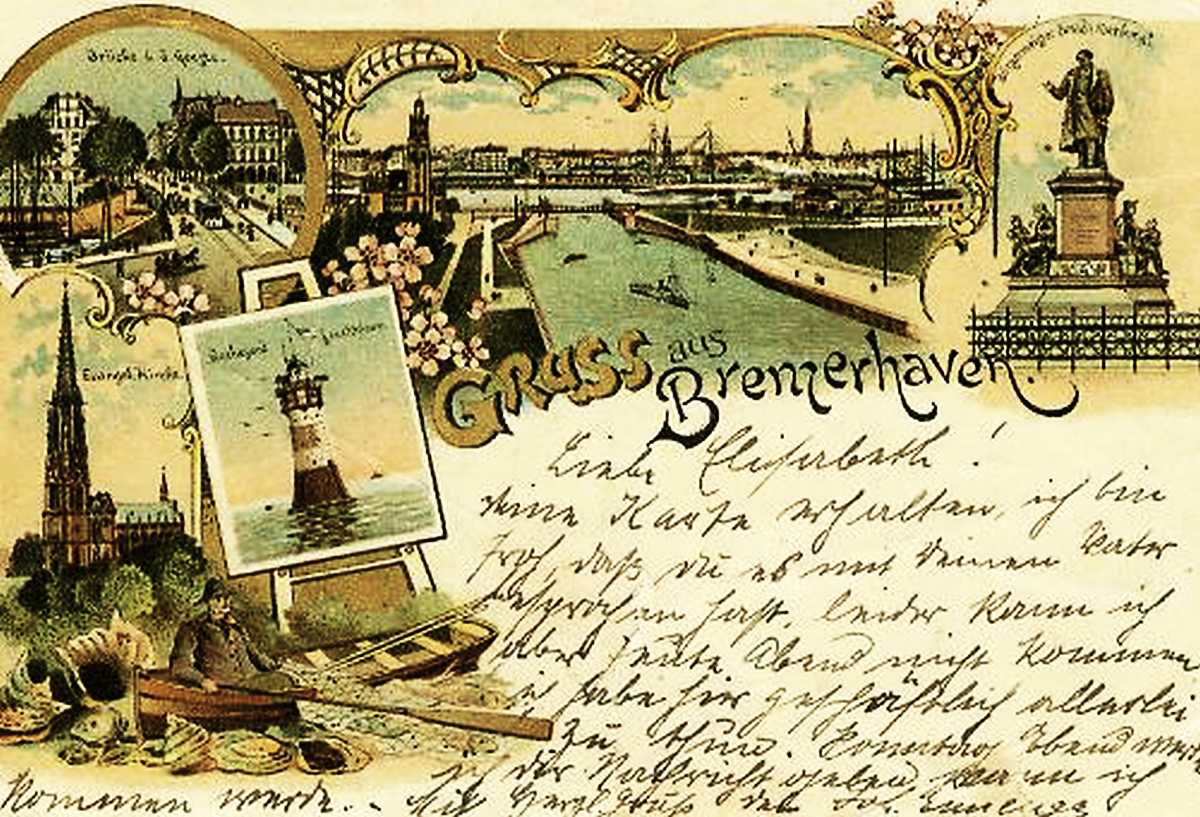 Brücke ü. d. Geeste.
Bürgermeister Smidt Denkmal.
Evangel. Kirche.
Rothesand Leuchtthurm
GRUSS aus
Bremerhaven.
Liebe Elisabeth!
deine Karte erhalten, ich bin
froh, daß du es mit deinem Vater
besprochen hast, leider kann ich
aber heute Abend nicht kommen
ich habe hier geschäftlich allerlei
zu thun. Sonntag Abend werde
ich dir Nachricht geben wann ich
kommen werde.. Mit Herzl Gruß